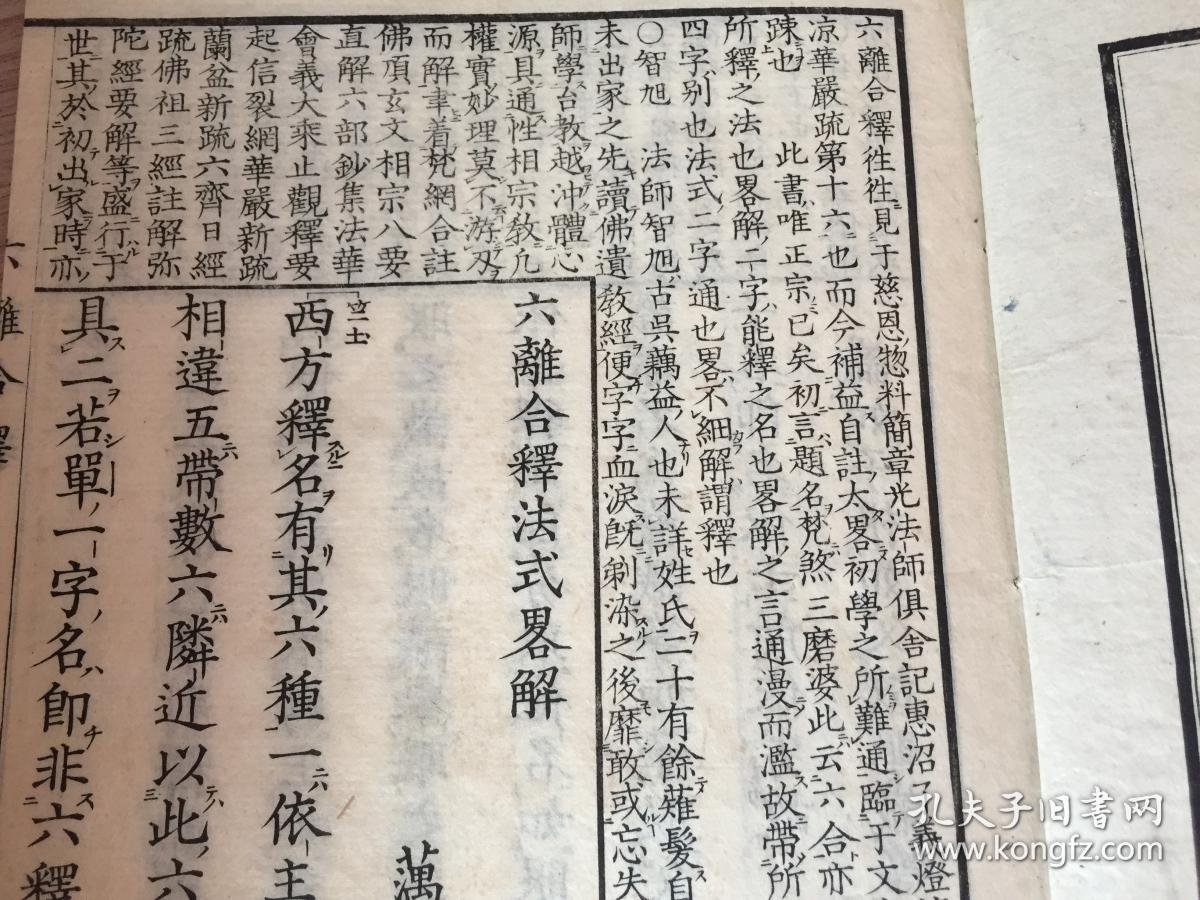 六離合釋徃徃見于慈恩惣料簡章光法師俱舍記惠沼了義燈
凉華嚴疏第十六也而今補益自註太畧初學之所難通臨于文
踈也 此書唯正宗已矣初言題名梵煞三磨婆此云六合亦
所釋之法也畧解二字能釋之名也畧解之言通漫而濫故帶所
四字別也法式二字通也畧不細解謂釋也
○智旭 法師智旭古吳藕益人也未詳姓氏二十有餘薙髮自
未出家之先讀佛遺教經便字字血淚既剃染之後靡敢或忘失
師學台教越沖體心
源具通性相宗教凢
權實妙理莫不游刃
而解聿着梵網合註
佛頂玄文相宗八要
直解六部鈔集法華
會義大乘止觀釋要
起信裂網華嚴新疏
蘭盆新疏六齊日經
疏佛祖三經註解弥
陀經要解等盛行于
世其於初出家時亦
六離合釋法式畧解
蕅
西方釋名有其六種一依主
相違五帶數六隣近以此六
具二若單一字名即非六釋
六離合釋
孔夫子旧书网
www.kongfz.com